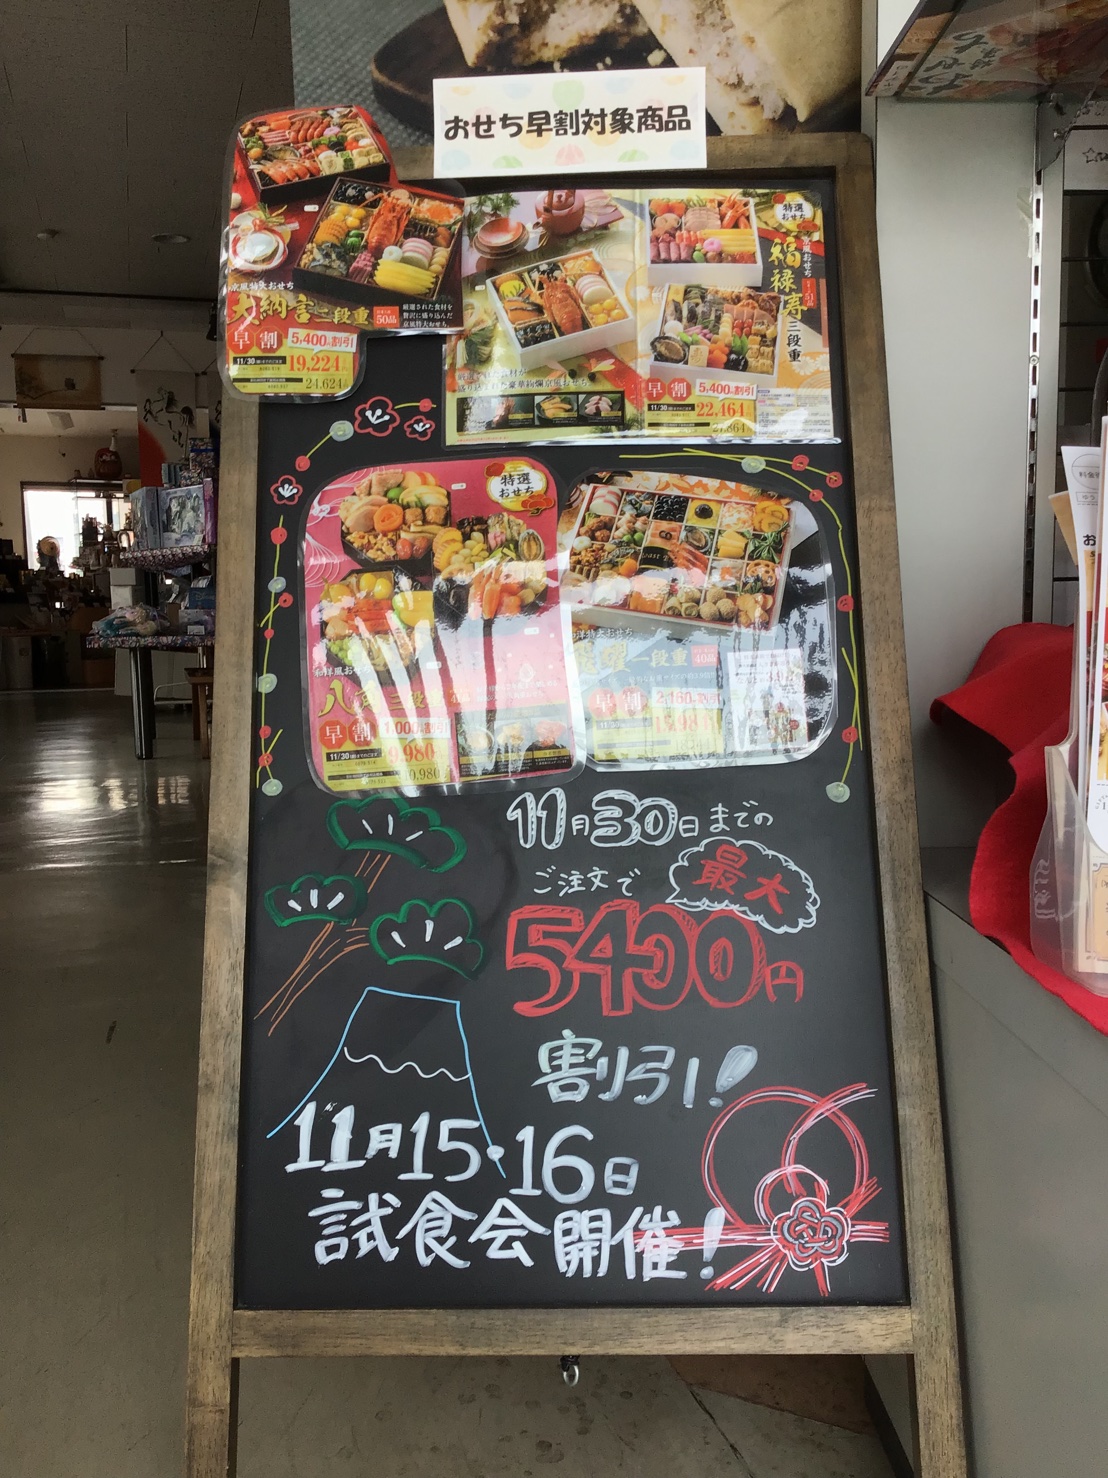 おせち早割対象商品
京風特大おせち
大納言二段重
50品
厳選された食材を
贅沢に盛り込んだ
京風特大おせち。
早割
5,400円割引
11/30
19,224
24,624
特選
おせち
京風おせち
福禄寿三段重
早割
5,400円割引
11/30
22,464
特選
おせち
和洋風おせち
早割
1,000円割引
11/30
9,980
10,980
一段重
40品
早割
2,160円割引
11月30日までの
ご注文で
最大
5400円
割引!
11月15・16日
試食会開催!